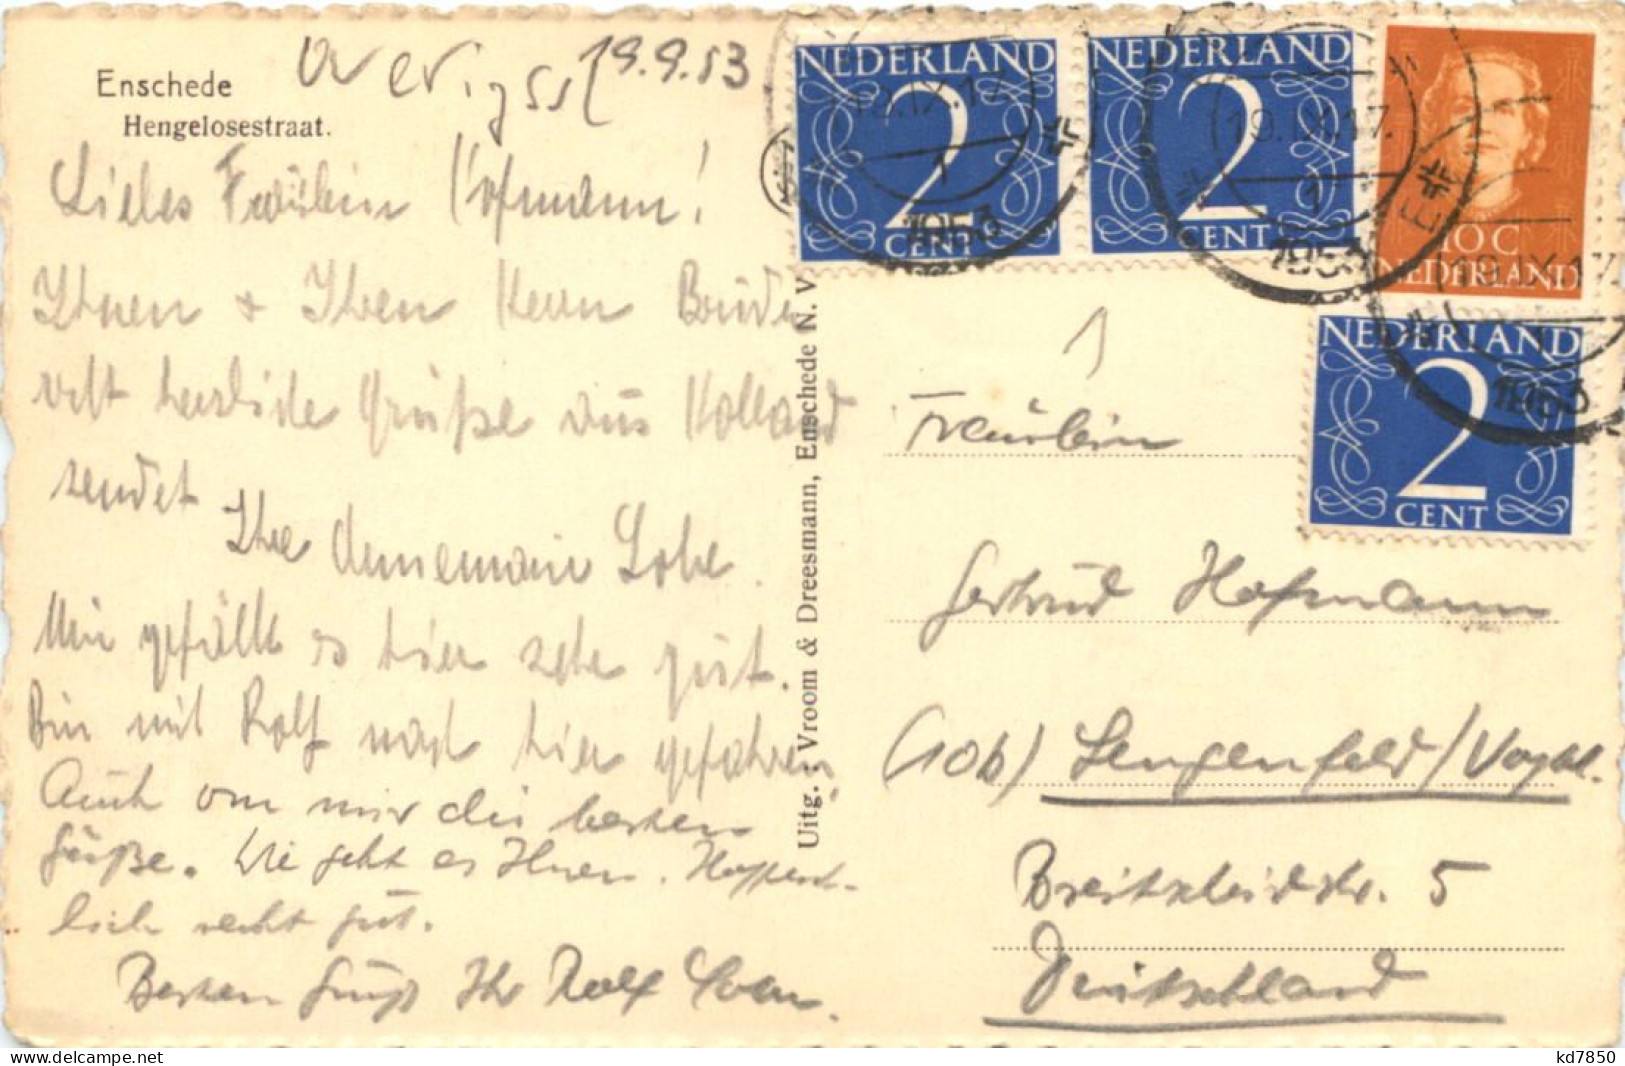 Enschede
Hengelosestraat.
19.9.53
Liebes Fräulein Hofmann!
Ihnen & Ihren Herrn Bruder
velt herzliche Grüße aus Holland
sendet
Ihre Annemarie
Mir gefällt es hier sehr gut.
Bin mit Rolf nach hier gefahren
Auch von mir die besten
Grüße. Wie geht es Ihnen. Hoffent-
lich recht gut.
Besten Gruß Ihr Rolf
Uitg.: Vroom & Dreesmann, Enschede N. V.
NEDERLAND
2
CENT
NEDERLAND
2
CENT
10 C
NEDERLAND
NEDERLAND
2
CENT
1953
1953
1953
19.IX.17.
1
Fräulein
Gertrud Hofmann
(10b) Lengenfeld/Vogtl.
Breitscheidstr. 5
Deutschland
kd7850